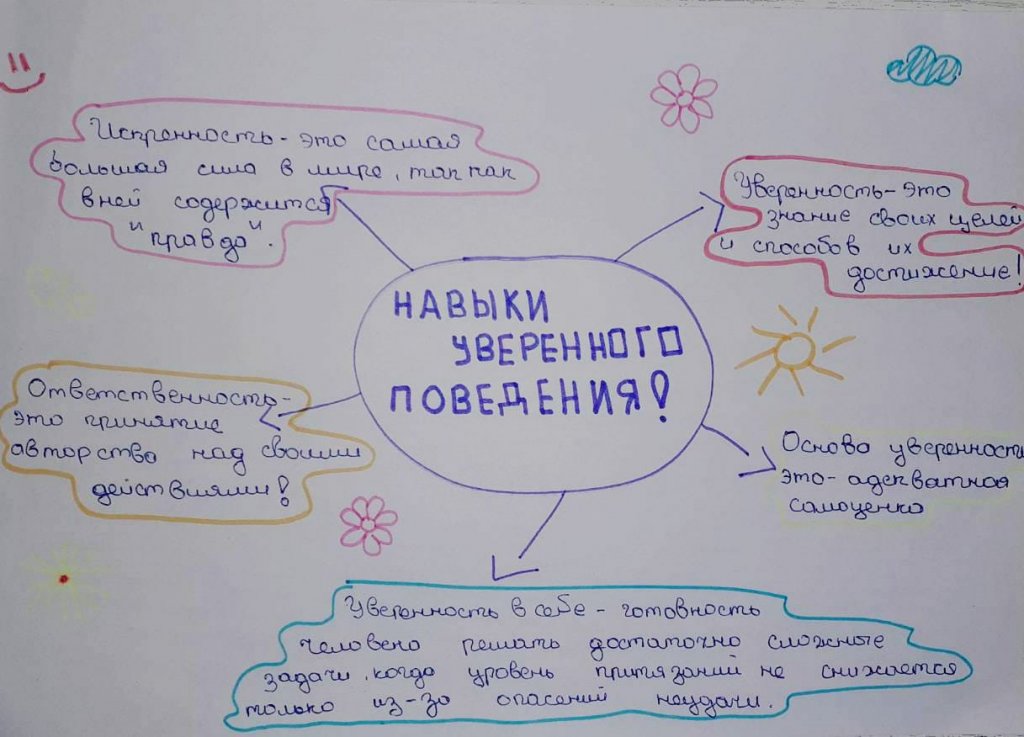 Искренность - это самая
большая сила в мире, так как
в ней содержится
"правда".
Уверенность - это
знание своих целей
и способов их
достижение!
НАВЫКИ
УВЕРЕННОГО
ПОВЕДЕНИЯ!
Ответственность -
это принятие
авторство над своими
действиями!
Основа уверенность
это - адекватная
самоценка
Уверенность в себе - готовность
человека решать достаточно сложные
задачи, когда уровень притязаний не снижается
только из-за опасений неудачи.